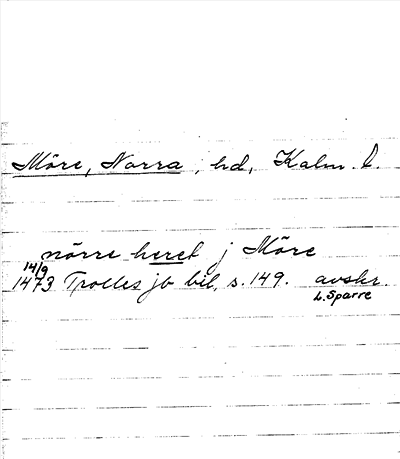 Möre, Norra, hd, Kalm. l.
nörre heret j Möre
14/9
1473 Trolles jb bil, s. 149. avskr.
L. Sparre